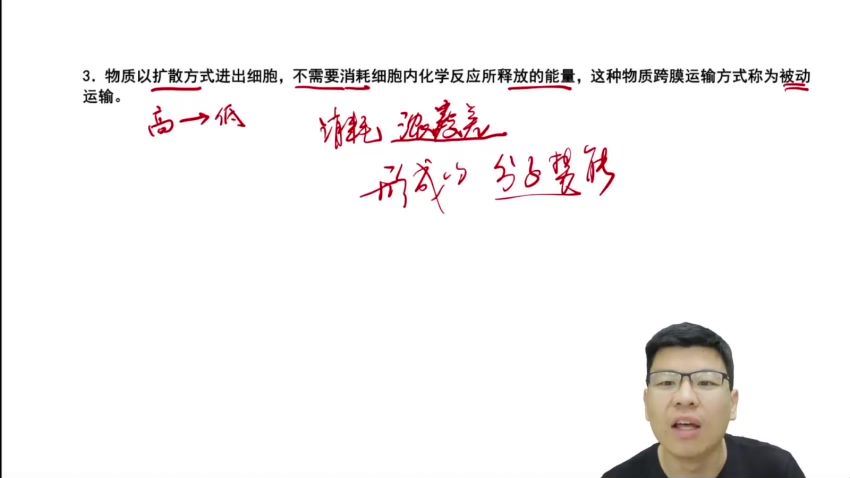 3. 物质以扩散方式进出细胞，不需要消耗细胞内化学反应所释放的能量，这种物质跨膜运输方式称为被动
运输。
高→低 消耗 浓度差
形成的 分子势能